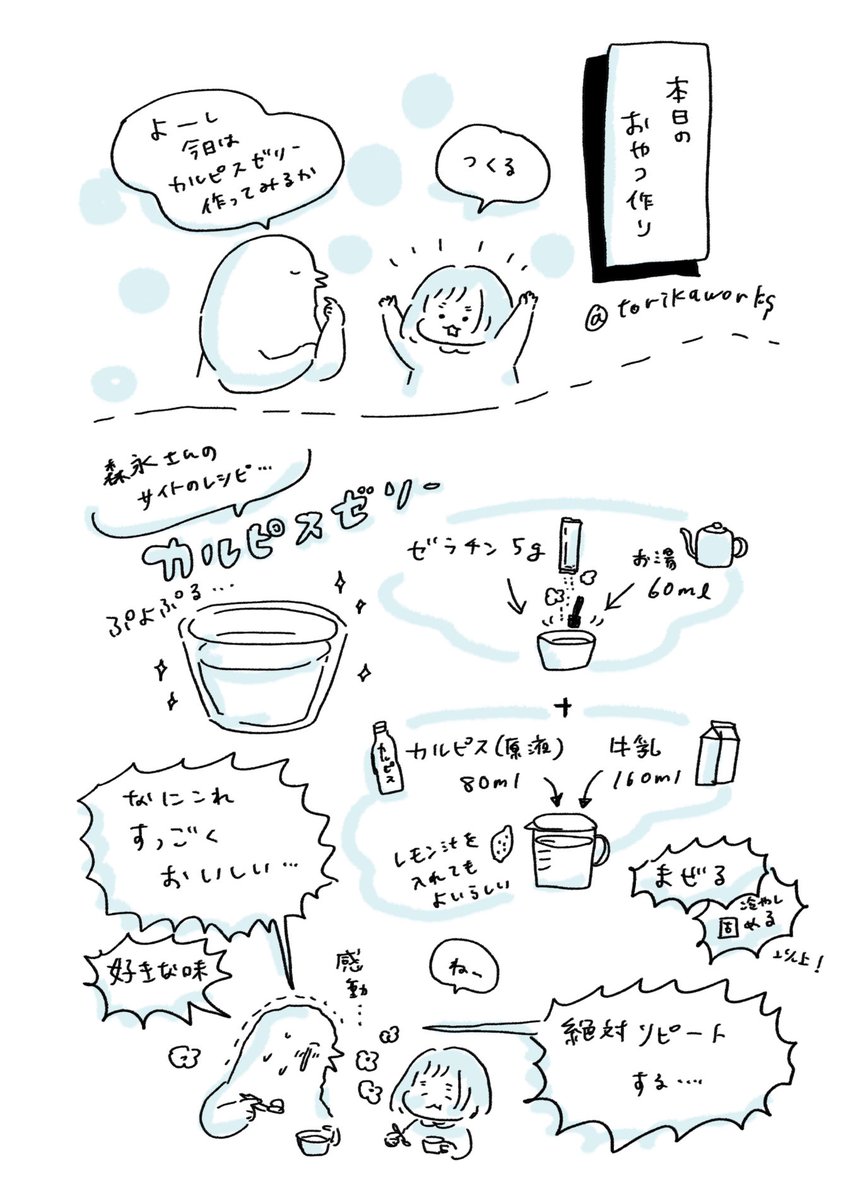 本日の
おやつ作り
@torikaworks
つくる
よーし
今日は
カルピスゼリー
作ってみるか
森永さんの
サイトのレシピ…
カルピスゼリー
ぷよぷる…
ゼラチン5g
お湯
60ml
+
カルピス
カルピス(原液)
80ml
牛乳
160ml
レモン汁を
入れても
よいらしい
まぜる
冷やし
固める
以上!
なにこれ
すっごく
おいしい…
好きな味
感動…
ねー
絶対リピート
する…